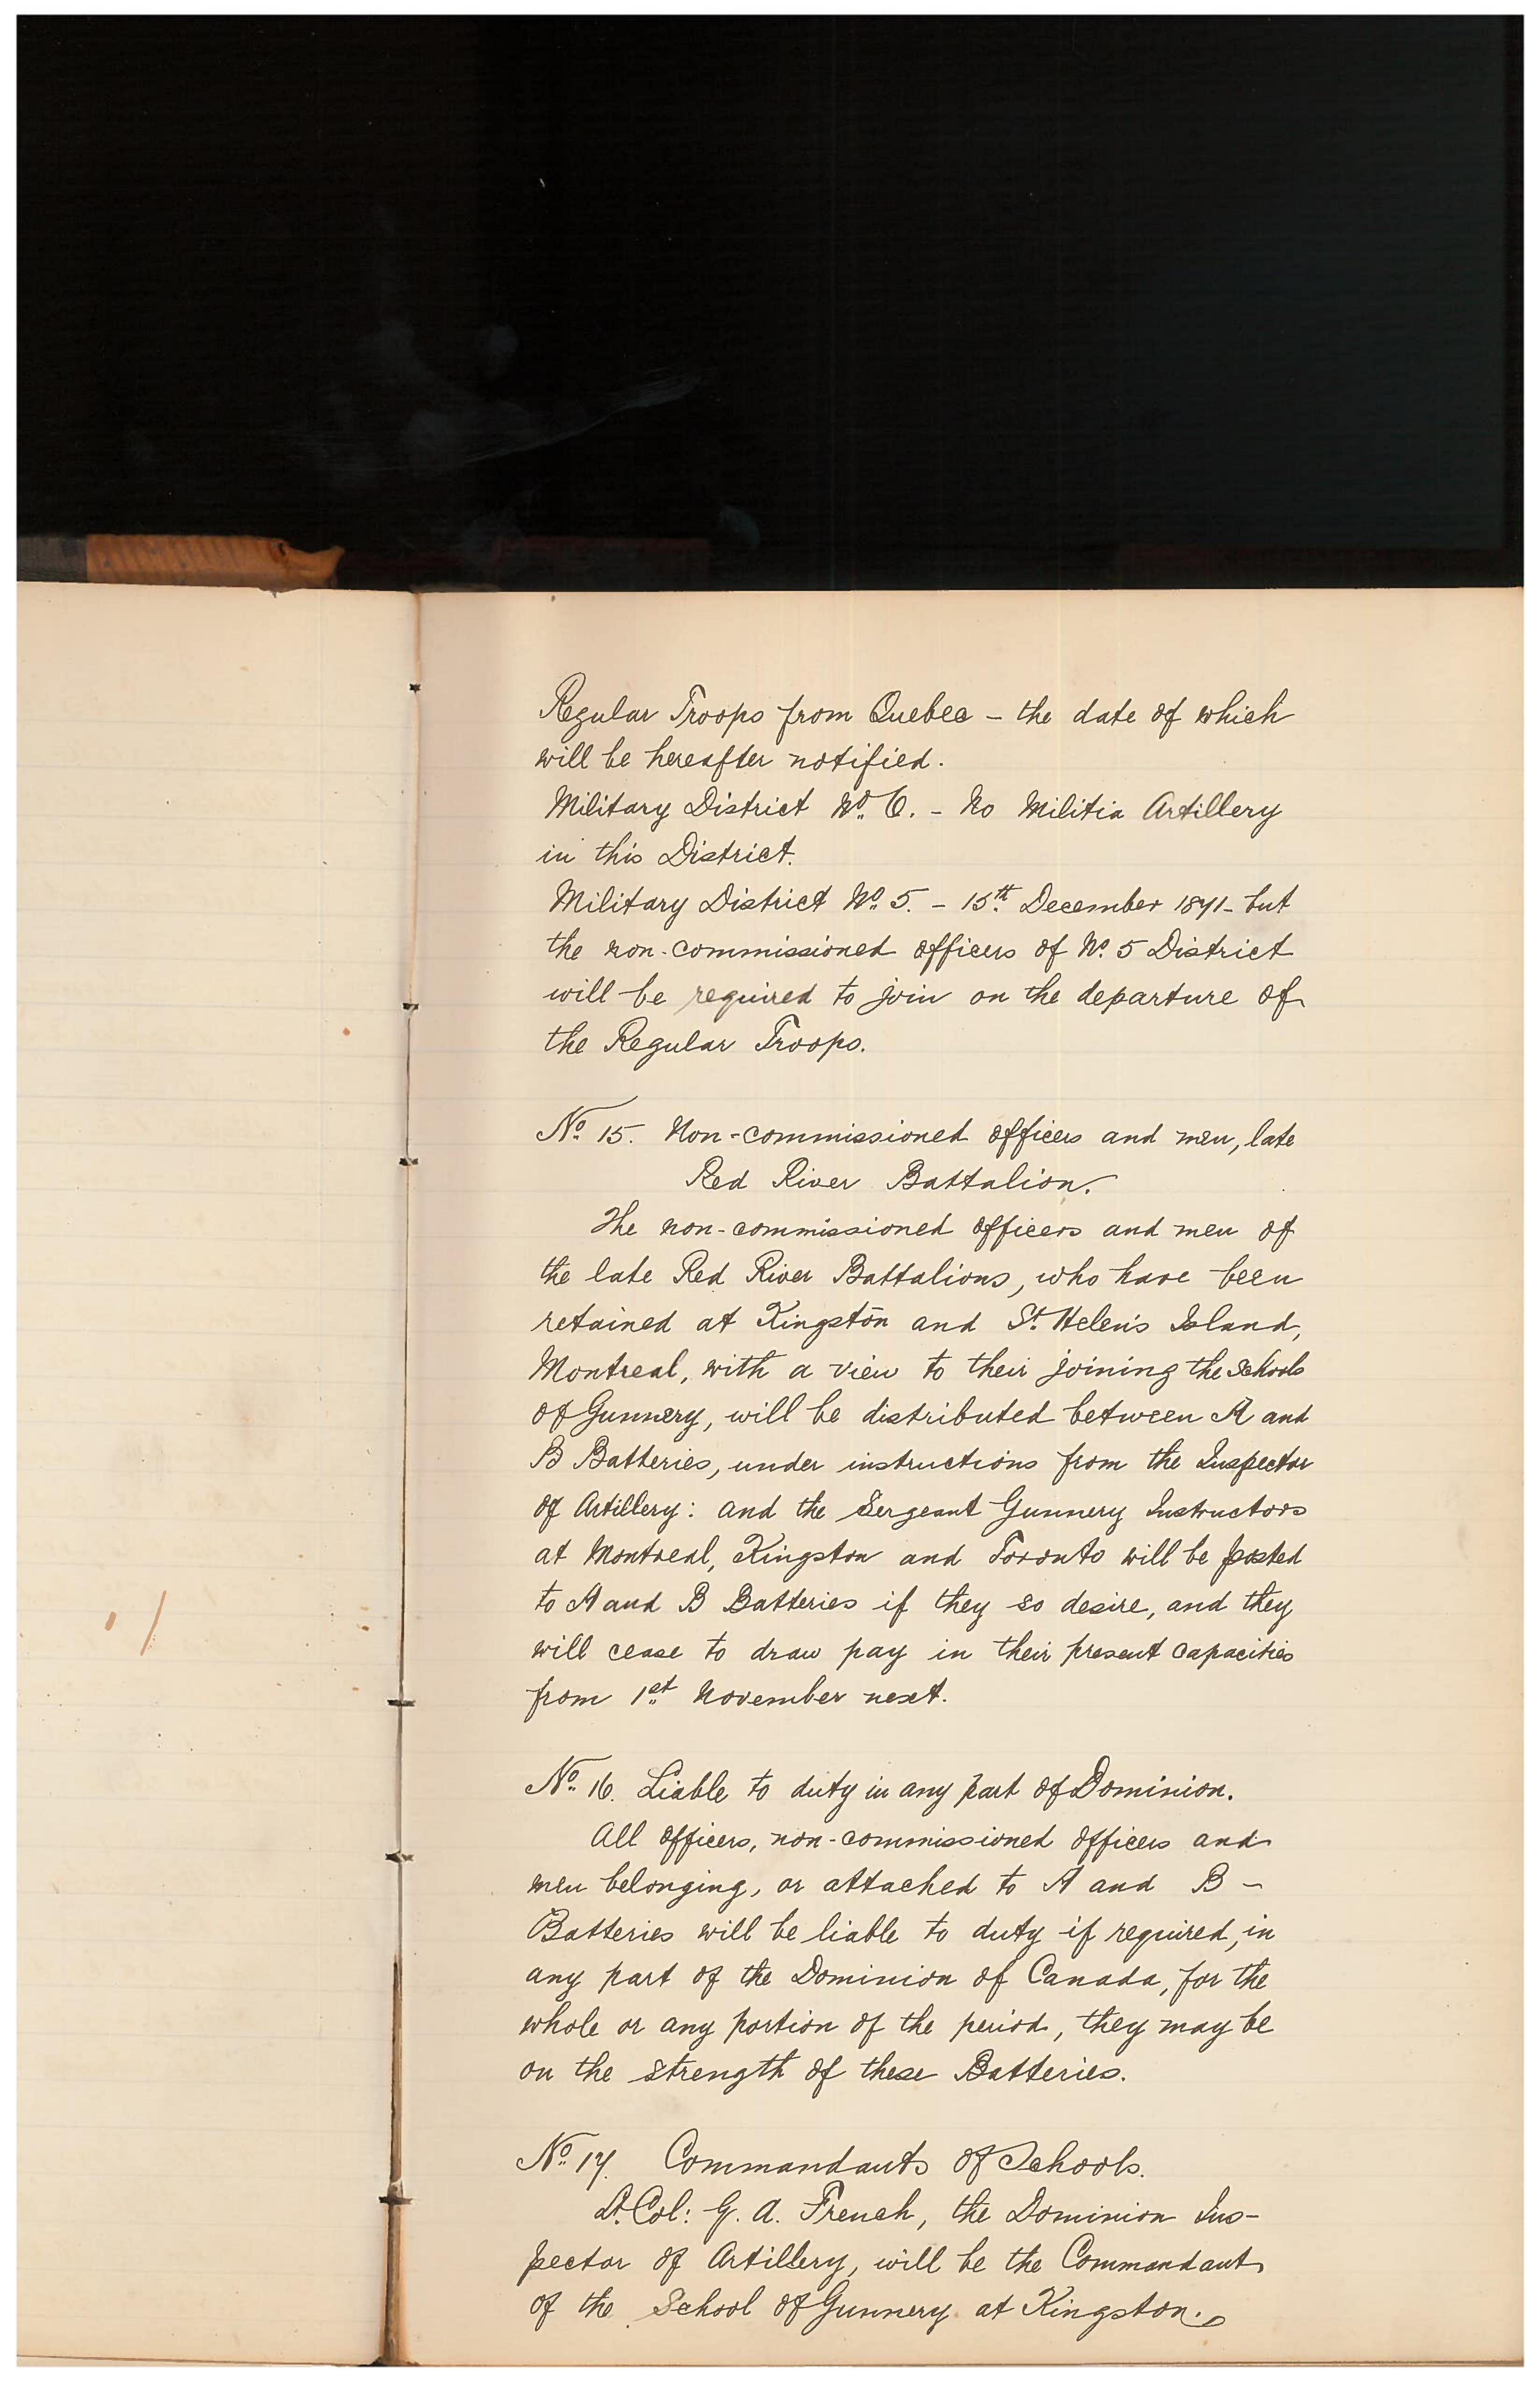 Regular Troops from Quebec – the date of which
will be hereafter notified.
Military District No. 6. – No Militia Artillery
in this District.
Military District No. 5. – 15th December 1871 – but
the non-commissioned officers of No. 5 District
will be required to join on the departure of
the Regular Troops.
No. 15. Non-commissioned officers and men, late
Red River Battalion.
The non-commissioned officers and men of
the late Red River Battalions, who have been
retained at Kingston and St. Helen's Island,
Montreal, with a view to their joining the Schools
of Gunnery, will be distributed between A and
B Batteries, under instructions from the Inspector
of Artillery: and the Sergeant Gunnery Instructors
at Montreal, Kingston and Toronto will be posted
to A and B Batteries if they so desire, and they
will cease to draw pay in their present capacities
from 1st November next.
No. 16. Liable to duty in any part of Dominion.
All officers, non-commissioned officers and
men belonging, or attached to A and B –
Batteries will be liable to duty if required, in
any part of the Dominion of Canada, for the
whole or any portion of the period, they may be
on the strength of these Batteries.
No. 17. Commandants of Schools.
Lt. Col: G. A. French, the Dominion Ins-
pector of Artillery, will be the Commandant
of the School of Gunnery at Kingston.